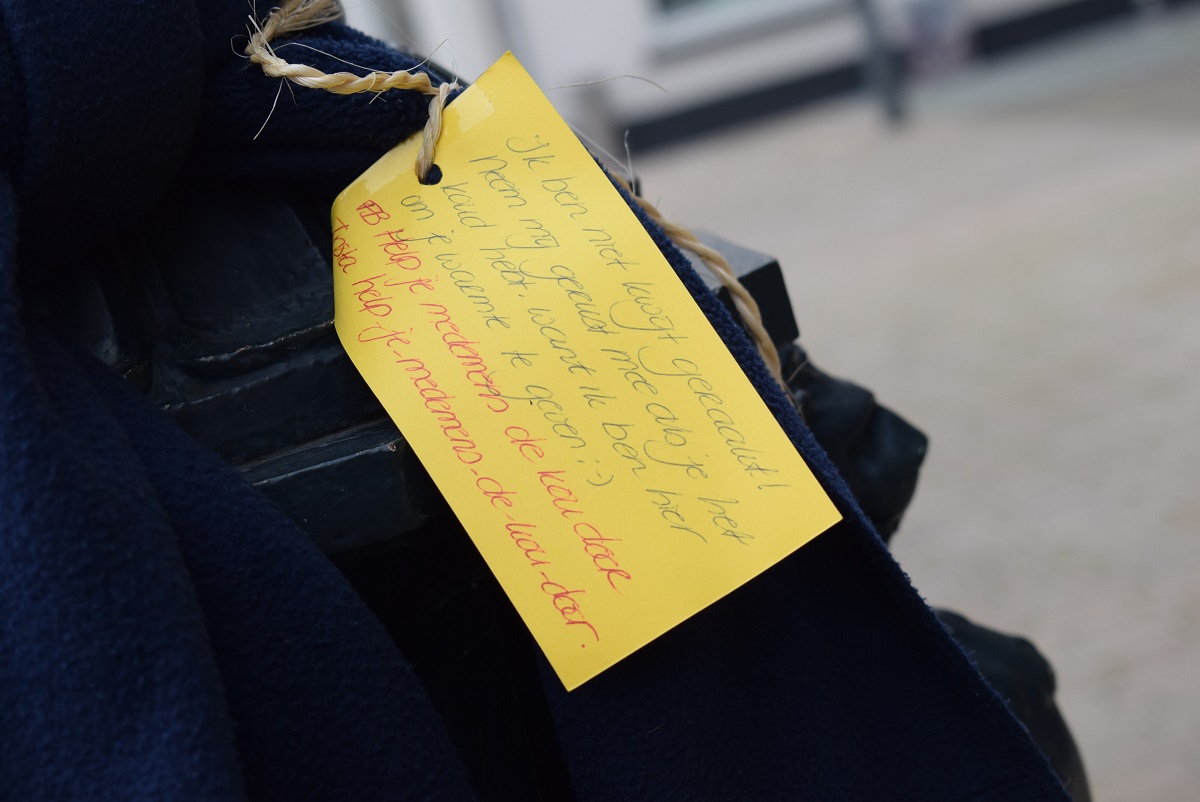 Ik ben niet kwijt geraakt!
Neem mij gerust mee als je het
koud hebt, want ik ben hier
om je warmte te geven :-)
FB Help je medemens de kou door
Insta help-je-medemens-de-kou-door.